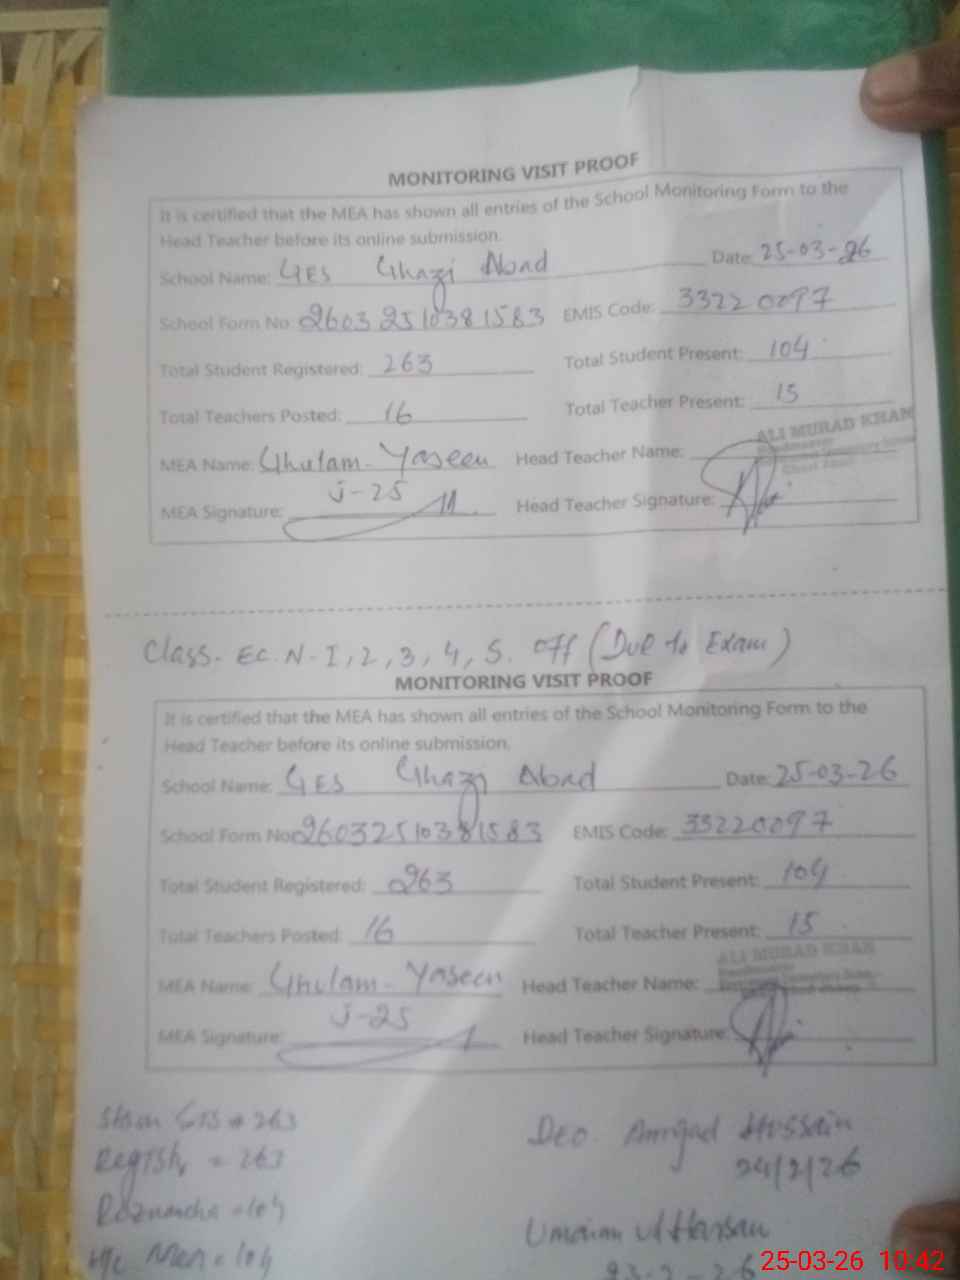 MONITORING VISIT PROOF
It is certified that the MEA has shown all entries of the School Monitoring Form to the
Head Teacher before its online submission.
School Name: GES Ghazi Abad Date: 25-03-26
School Form No: 2603 2510381583 EMIS Code: 33220097
Total Student Registered: 263 Total Student Present: 104
Total Teachers Posted: 16 Total Teacher Present: 15
MEA Name: Ghulam Yaseen Head Teacher Name: ALI MURAD KHAN
J-25
MEA Signature: Head Teacher Signature:
Class. Ec. N-I, 2, 3, 4, 5. off (Due to Exam)
MONITORING VISIT PROOF
It is certified that the MEA has shown all entries of the School Monitoring Form to the
Head Teacher before its online submission.
School Name: GES Ghazi Abad Date: 25-03-26
School Form No: 26032510381583 EMIS Code: 33220097
Total Student Registered: 263 Total Student Present: 104
Total Teachers Posted: 16 Total Teacher Present: 15
MEA Name: Ghulam Yaseen Head Teacher Name: ALI MURAD KHAN
J-25
MEA Signature: Head Teacher Signature:
SIS = 263
= 263
Roznamcha = 104
= 104
DEO Amjad Hussain
24/2/26
Hassan
25-03-26 10:42